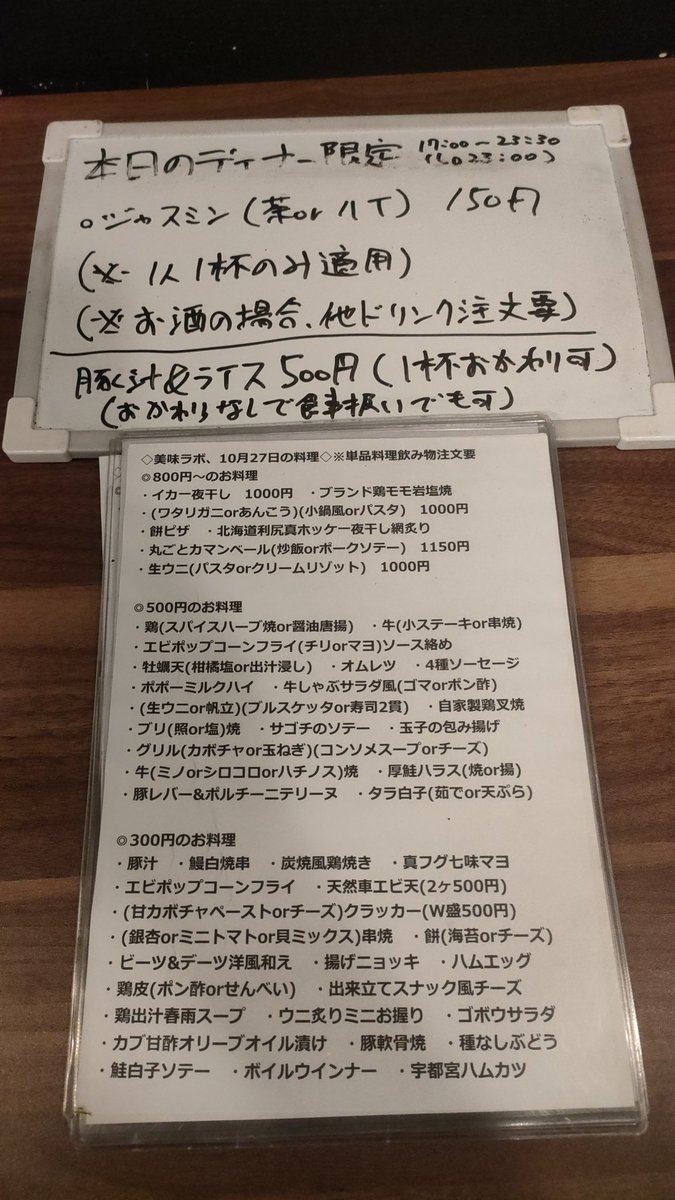 本日のディナー限定 17:00〜23:30
(LO 23:00)
○ジャスミン(茶orハイ) 150円
(※1人1杯のみ適用)
(※お酒の場合、他ドリンク注文要)
豚汁&ライス500円(1杯おかわり可)
(おかわりなしで食事扱いでも可)
◇美味ラボ、10月27日の料理◇※単品料理飲み物注文要
◎800円〜のお料理
・イカ一夜干し 1000円 ・ブランド鶏モモ岩塩焼
・(ワタリガニorあんこう)(小鍋風orパスタ) 1000円
・餅ピザ ・北海道利尻真ホッケ一夜干し網炙り
・丸ごとカマンベール(炒飯orポークソテー) 1150円
・生ウニ(パスタorクリームリゾット) 1000円
◎500円のお料理
・鶏(スパイスハーブ焼or醤油唐揚) ・牛(小ステーキor串焼)
・エビポップコーンフライ(チリorマヨ)ソース絡め
・牡蠣天(柑橘塩or出汁浸し) ・オムレツ ・4種ソーセージ
・ポポーミルクハイ ・牛しゃぶサラダ風(ゴマorポン酢)
・(生ウニor帆立)(ブルスケッタor寿司2貫) ・自家製鶏叉焼
・ブリ(照or塩)焼 ・サゴチのソテー ・玉子の包み揚げ
・グリル(カボチャor玉ねぎ)(コンソメスープorチーズ)
・牛(ミノorシロコロorハチノス)焼 ・厚鮭ハラス(焼or揚)
・豚レバー&ポルチーニテリーヌ ・タラ白子(茹でor天ぷら)
◎300円のお料理
・豚汁 ・鰻白焼串 ・炭焼風鶏焼き ・真フグ七味マヨ
・エビポップコーンフライ ・天然車エビ天(2ヶ500円)
・(甘カボチャペーストorチーズ)クラッカー(W盛500円)
・(銀杏orミニトマトor貝ミックス)串焼 ・餅(海苔orチーズ)
・ビーツ&デーツ洋風和え ・揚げニョッキ ・ハムエッグ
・鶏皮(ポン酢orせんべい) ・出来立てスナック風チーズ
・鶏出汁春雨スープ ・ウニ炙りミニお握り ・ゴボウサラダ
・カブ甘酢オリーブオイル漬け ・豚軟骨焼 ・種なしぶどう
・鮭白子ソテー ・ボイルウインナー ・宇都宮ハムカツ